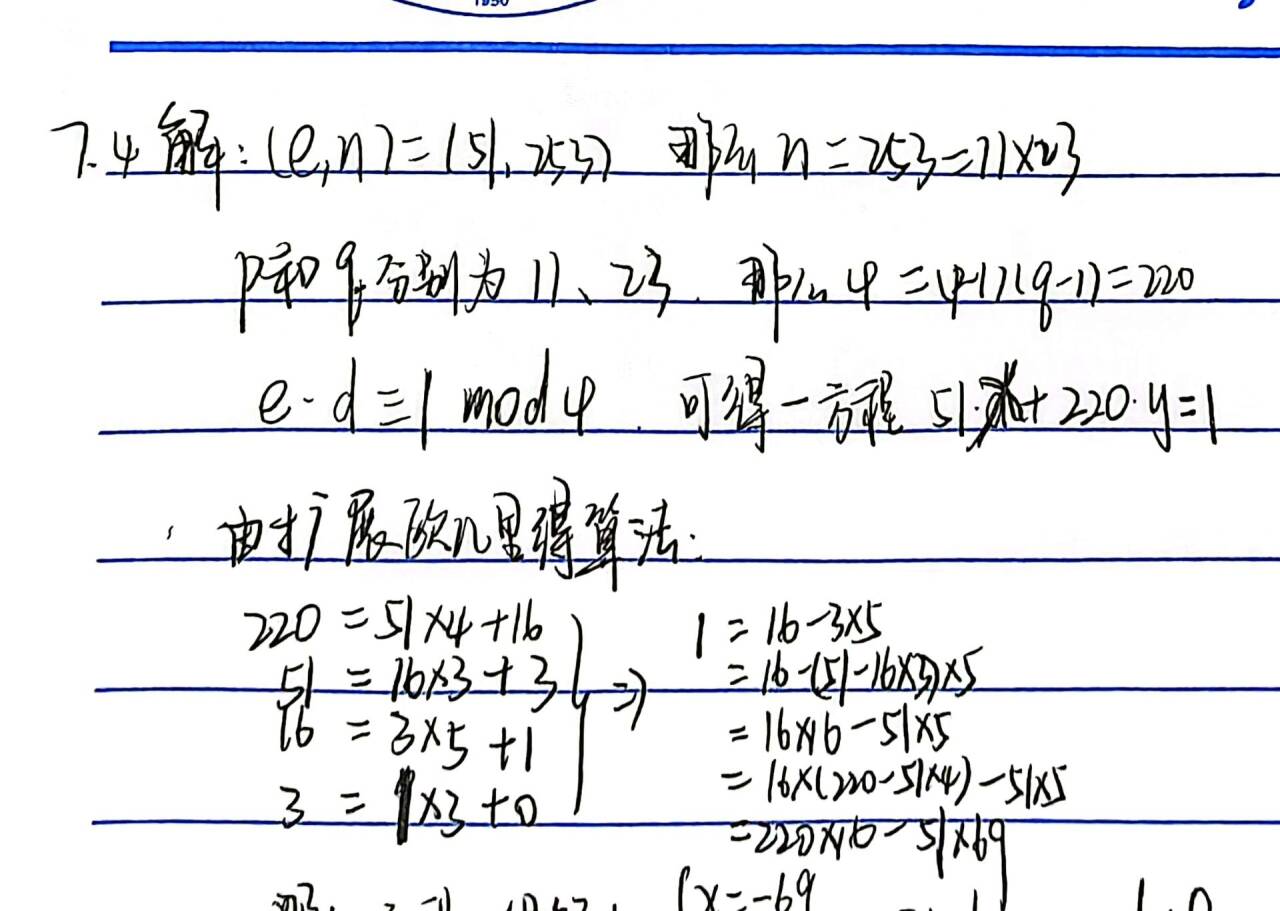 1950
7.4 解: (e,n)=(51,253) 那么 n=253=11×23
p和q分别为 11、23. 那么 φ=(p-1)(q-1)=220
e·d≡1 mod φ. 可得一方程 51·x+220·y=1
由扩展欧几里得算法:
220 = 51×4+16
51 = 16×3+3
16 = 3×5+1
3 = 1×3+0
⇒
1 = 16-3×5
= 16-(51-16×3)×5
= 16×16-51×5
= 16×(220-51×4)-51×5
= 220×16-51×69
x=-69